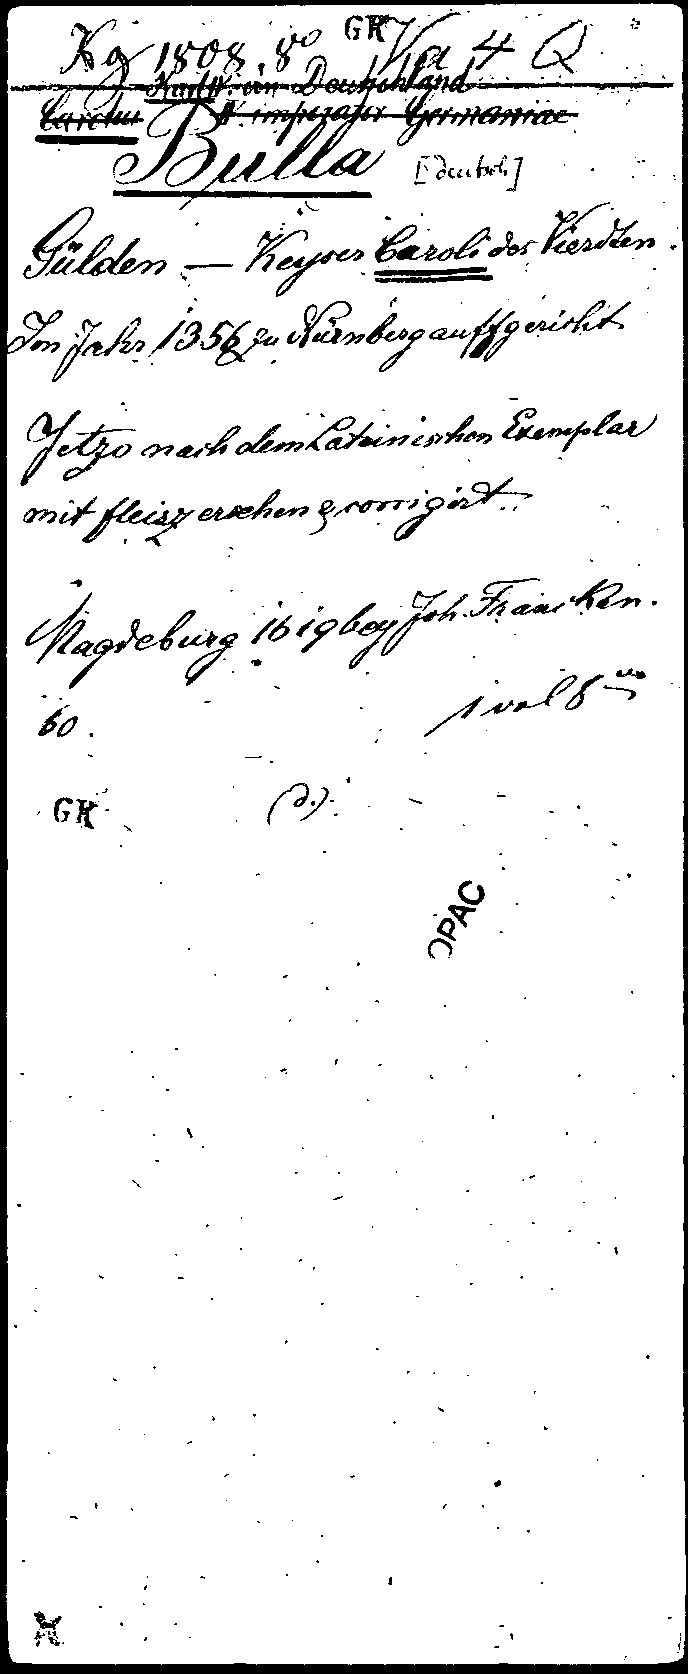 Kg 1808, 8° GK Va 4 Q
Karl IV. in Deutschland
Carolus IV imperator Germaniae
Bulla [deutsch]
Gülden — Keyser Caroli des Vierdten.
Im Jahr 1356 zu Nürnberg auffgericht
Jetzo nach dem Lateinischen Exemplar
mit fleisz ersehen & corrigirt.
Magdeburg 1619 bey Joh. Francken.
60. 1 vol 8vo
GK (d.)
OPAC